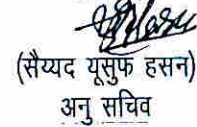 (सैय्यद यूसुफ हसन)
अनु सचिव